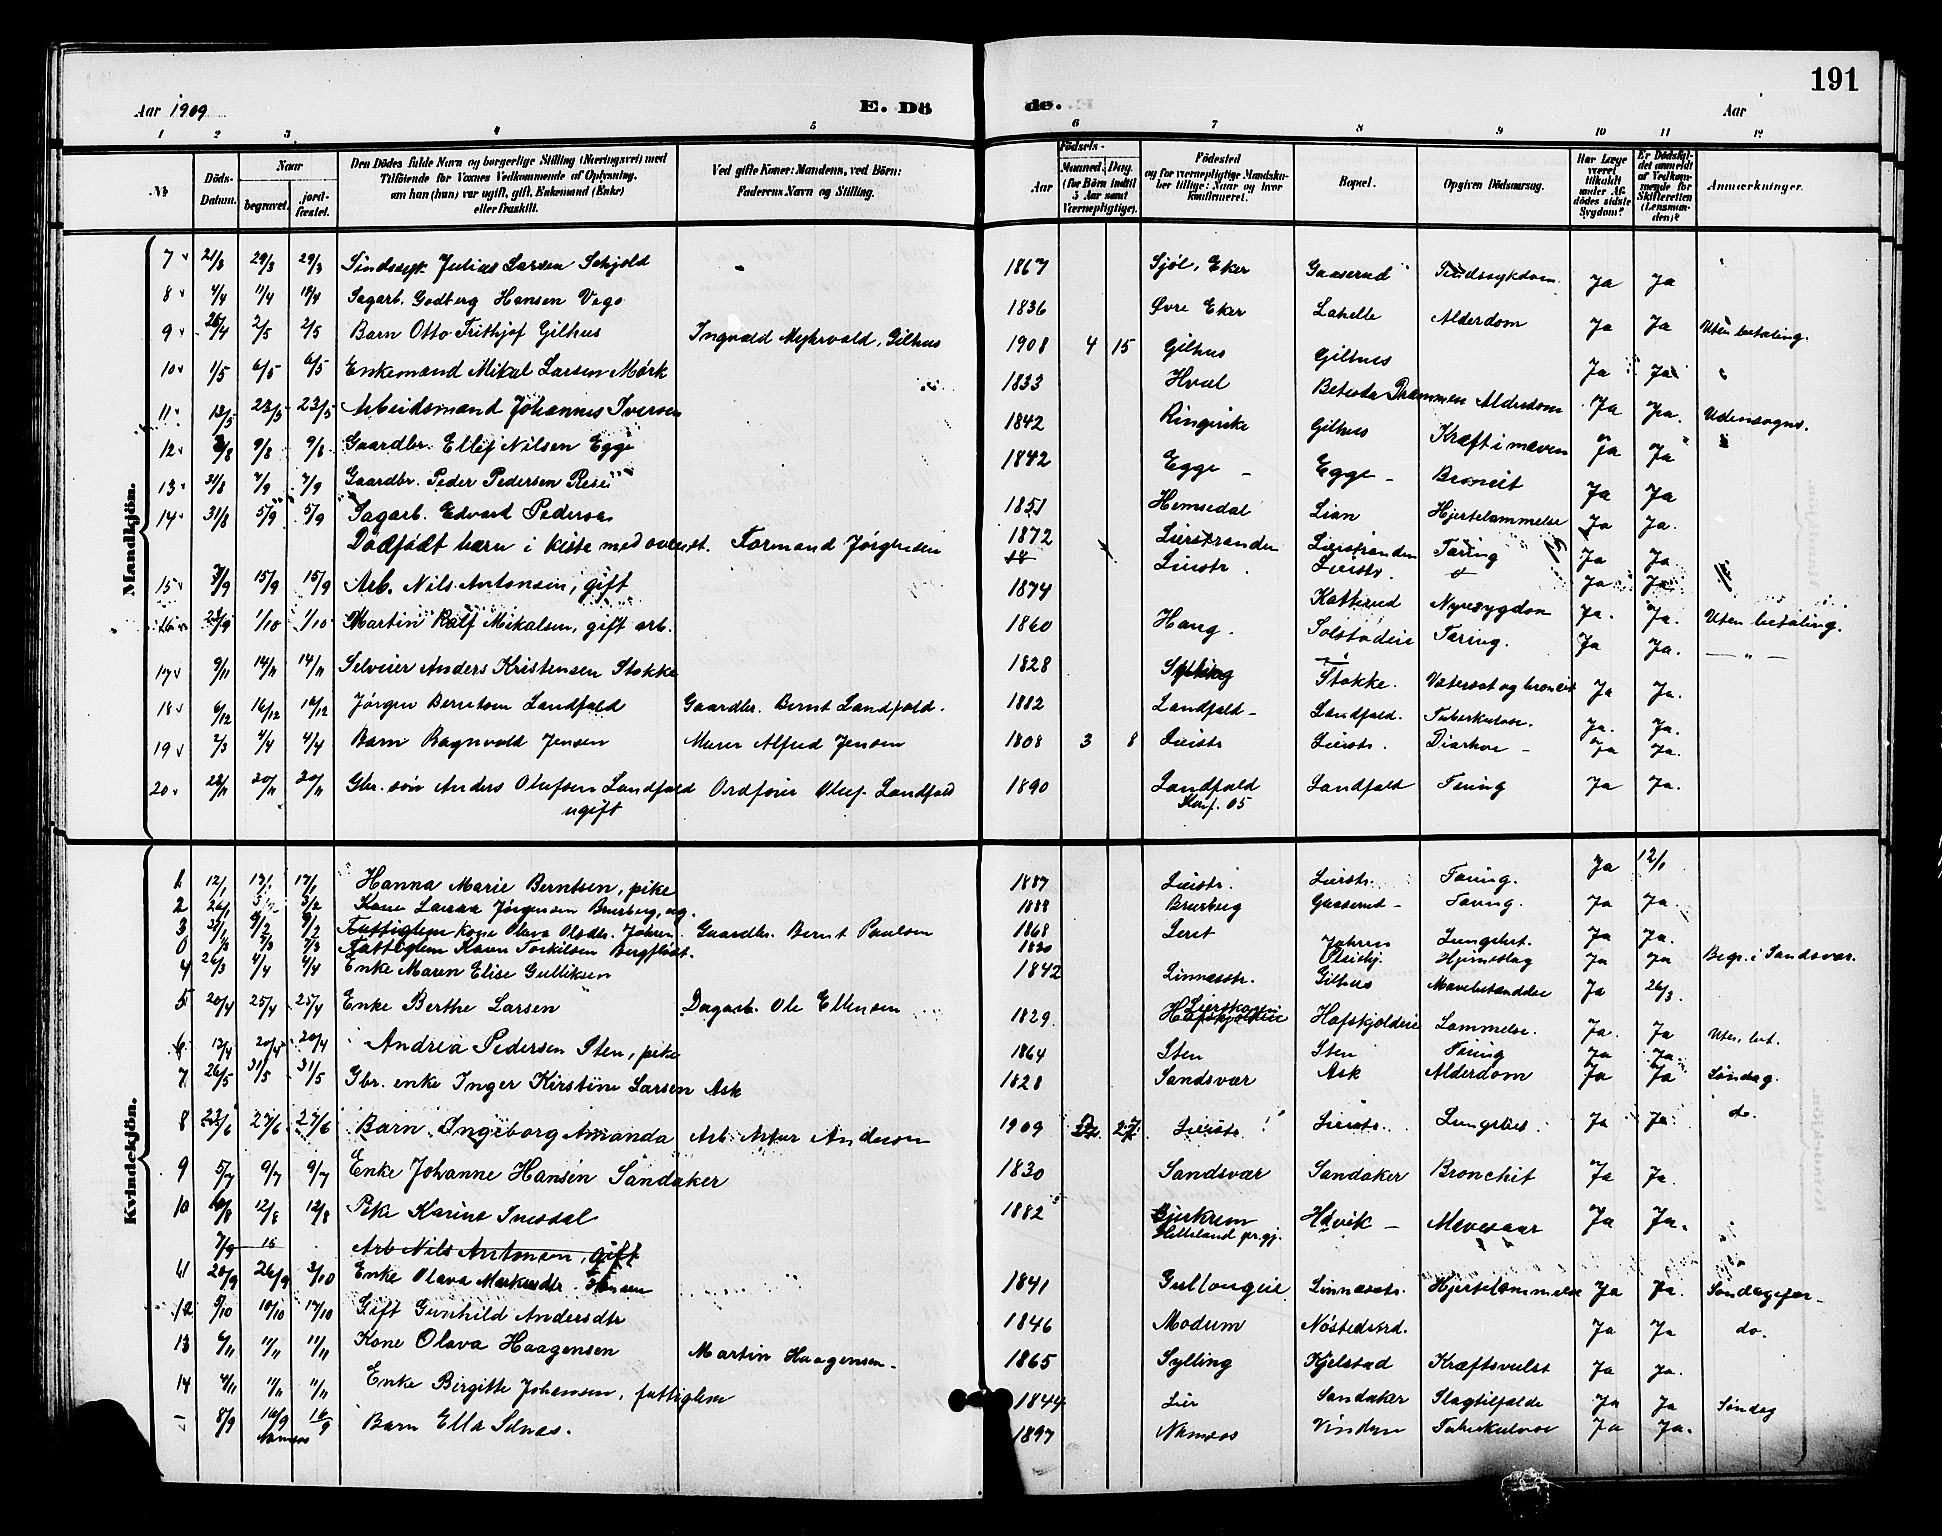 191
Aar 1909
E. Dö
de.
Aar
1 2 3 4 5 6 7 8 9 10 11 12
№
Döds-Datum.
Naar
begravet. jord-fæstet.
Den Dödes fulde Navn og borgerlige Stilling (Næringsvei) med
Tilföiende for Voxnes Vedkommende af Oplysning,
om han (hun) var ugift, gift, Enkemand (Enke)
eller fraskilt.
Ved gifte Koner: Mandens, ved Börn:
Faderens Navn og Stilling.
Födsels-
Aar Maaned. Dag.
(for Börn indtil 5 Aar samt Værnepligtige).
Födested
og for værnepligtige Mandska-
ber tillige: Naar og hvor
konfirmeret.
Bopæl.
Opgiven Dödsaarsag.
Har Læge været tilkaldt under Afdödes sidste Sygdom?
Er Dödsfaldet anmeldt af Vedkommende for Skifteretten (Lensmanden)?
Anmærkninger.
Mandkjön.
7 21/3 29/3 29/3 Sindssyk Julius Larsen Schjold 1867 Sjöl, Eker Gaaserud Sindssykdom Ja Ja
8 4/4 11/4 18/4 Sagarb. Godberg Hansen Vego 1836 Øvre Eker Lahelle Alderdom Ja Ja Uten betaling.
9 26/4 2/5 2/5 Barn Otto Frithjof Gilhus Ingvald Mejhrvald, Gilhus 1908 4 15 Gilhus Gilhus Ja Ja
10 1/5 6/5 6/5 Enkemand Mikal Larsen Mørk 1833 Hval Drammen Alderdom Ja Ja. Udensogns.
11 13/5 23/5 23/5 Arbeidsmand Johannes Iversen 1842 Ringerike Gilhus Kræft i maven Ja Ja
12 9/8 9/8 Gaardbr. Ellef Nilsen Egge 1842 Egge Egge Broncit Ja Ja
13 31/8 7/9 7/9 Gaardbr. Peder Pedersen 1851 Hemsedal Lian Hjertelammelse Ja Ja.
14 31/8 5/9 5/9 Sagarb. Edvard Pedersen 1872 Lierstranden Lierstranden Tæring Ja Ja
Dödfödt barn i kiste med Formand Jørgensen Lierstr. Lierstr. Ja Ja
15 15/9 15/9 Arb. Nils Antonsen, gift 1874 Katterud Nyresygdom Ja. Ja. Uten betaling.
1/10 1/10 Martin Ralf Mikalsen, gift arb. 1860 Haug. Solstadeie Tæring. Ja Ja. — " —
17 9/11 14/11 14/11 Selveier Anders Kristensen Stokke 1828 Sylling Stokke. Vatersot og broncit Ja Ja.
18 6/12 16/12 16/12 Jørgen Berntsen Landfald Gaardbr. Bernt Landfald. 1882 Landfald Landfald. Tuberkulose. Ja. Ja.
19 2/3 4/4 4/4 Barn Ragnvald Jensen Murer Alfred Jensen 1808 3 8 Lierstr Lierstr. Diarhoe Ja Ja.
20 20/11 20/11 Gbr. søn Anders Olufsen Landfald Ordfører Oluf Landfald 1890 Landfald Landfald Tæring Ja Ja.
ugift
Konf. 05
Kvindekjön.
1 12/1 17/1 17/1 Hanna Marie Berntsen, pike 1887 Lierstr. Lierstr. Tæring. Ja 12/1
2 3/2 Kone Laura Jørgensen Bruberg, ug. 1888 Bruberg Gaaserud Tæring. Ja Ja.
3 9/2 9/2 Fattiglem kone Olava Olsdtr. Gaardbr. Bernt Paulsen 1868 Ja Ja.
0 7/3 7/3 Fattiglem Karen Torkilsen Bergflødt. 1820 Hjerneslag Ja Ja Begr. i Sandsvær.
4 26/3 4/4 4/4 Enke Maren Elise Gulliksen 1842 Linnesstr. Gilhus Mavebetændelse Ja 26/3.
5 20/4 25/4 25/4 Enke Berthe Larsen Dagarb. Ole Ellensen 1829 Lierskogen Hafskjoldeie Hafskjoldeie Lammelse. Ja. Ja Uten bet.
6 13/4 20/4 20/4 Andrea Pedersen Sten, pike 1864 Sten Sten Tæring Ja Ja
7 26/5 31/5 31/5 Gbr. enke Inger Kirstine Larsen Ask 1828 Sandsvær Ask Alderdom Ja Ja Søndag.
8 23/6 27/6 27/6 Barn Ingeborg Amanda Arb. Artur Andersen 1909 27 Lierstr. Lierstr. Ja Ja. do.
9 5/7 9/7 9/7 Enke Johanne Hansen Sandaker 1830 Sandsvær Sandaker Bronchit Ja Ja.
10 12/8 12/8 Pike Karine Ivesdal 1882 Bjerkrem Helleland pr.gj. Hdvik Mavesaar Ja Ja.
7/9 Arb Nils Antonsen, gift
11 20/9 26/9 3/10 Enke Olava Hansen 1841 Gullaugeie Linnesstr. Hjertelammelse Ja Ja. Søndag
12 9/10 10/10 17/10 Gift Gunhild Andersdtr 1846 Modum Nøstedjord. Ja Ja do.
13 6/11 11/11 11/11 Kone Olava Haagensen Martin Haagensen. 1865 Sylling Kjelstad Kræftsvulst Ja Ja.
14 4/11 11/11 11/11 Enke Birgitte Johansen, fattiglem 1844 Lier Sandaker Slagtilfælde Ja Ja Søndag
– 8/9 16/9 16/9 Barn Ella Selnæs. 1897 Namsos Tuberkulose Ja Ja.
Namsos